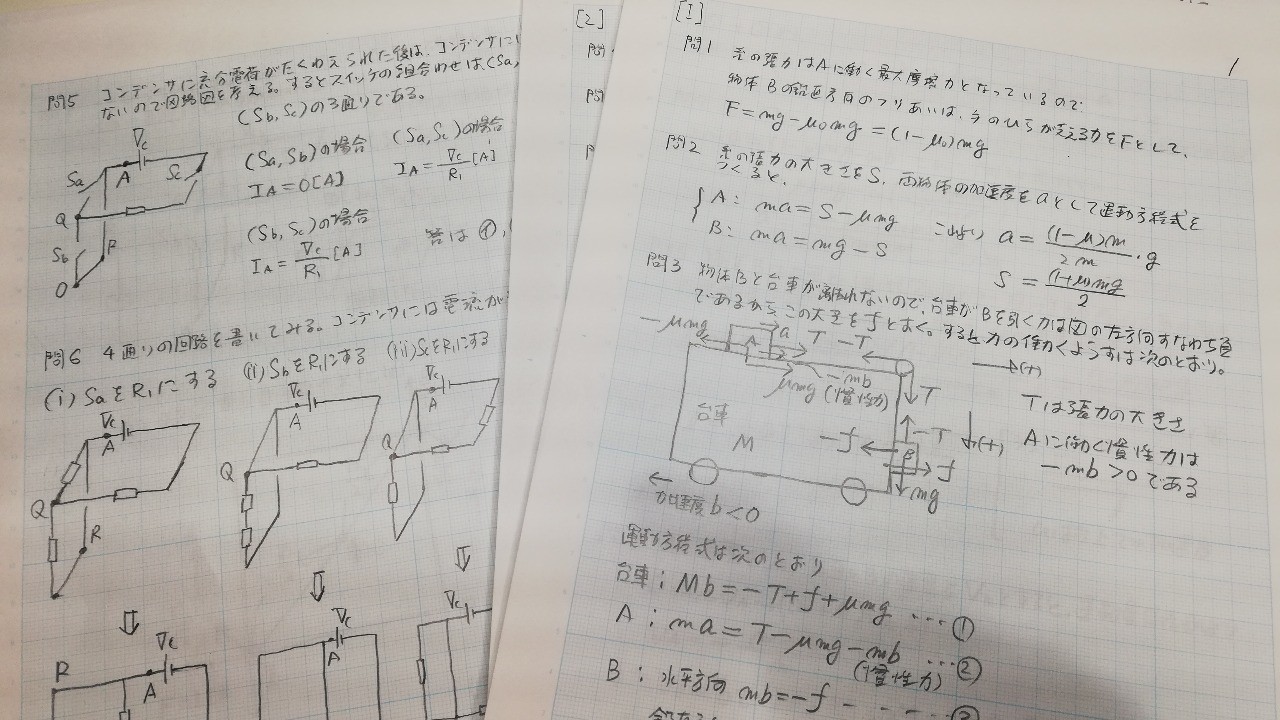 問5 コンデンサに充分電荷がたくわえられた後は、コンデンサに
ないので回路図を考える。するとスイッチの組合わせは(Sa,
(Sb, Sc)の3通りである。
Vc
Sa
A
Sc
Q
Sb
R
O
(Sa, Sb)の場合
IA = 0[A]
(Sa, Sc)の場合
IA = Vc/R1 [A]
(Sb, Sc)の場合
IA = Vc/R1 [A]
答は
問6 4通りの回路を書いてみる。コンデンサには電流が
(i) SaをR1にする
(ii) SbをR1にする
(iii) ScをR1にする
Vc
A
Q
R
Vc
A
Q
Vc
A
Q
⇓
⇓
⇓
R
Vc
A
Vc
A
Vc
[2]
問
問
[I]
1
問1 糸の張力はAに働く最大摩擦力となっているので
物体Bの鉛直方向のつりあいは、手のひらが支える力をFとして、
F = mg − μ0mg = (1−μ0)mg
問2 糸の張力の大きさをS、両物体の加速度をaとして運動方程式を
つくると、
A: ma = S − μmg
B: ma = mg − S
これより a = (1−μ)m/2m ・g
S = (1+μ)mg/2
問3 物体Bと台車が離れないので、台車がBを引く力は図の左方向すなわち負
であるから、この大きさをfとおく。すると力の働くようすは次のとおり。
→(+)
−μmg
A
a
T
−T
−mb
(慣性力)
μmg
T
台車
M
−T
↓(+)
−f
B
f
mg
加速度 b<0
Tは張力の大きさ
Aに働く慣性力は
−mb>0である
運動方程式は次のとおり
台車: Mb = −T+f+μmg ‥‥①
A: ma = T−μmg−mb ‥‥②
(慣性力)
B: 水平方向 mb = −f - - - - ③